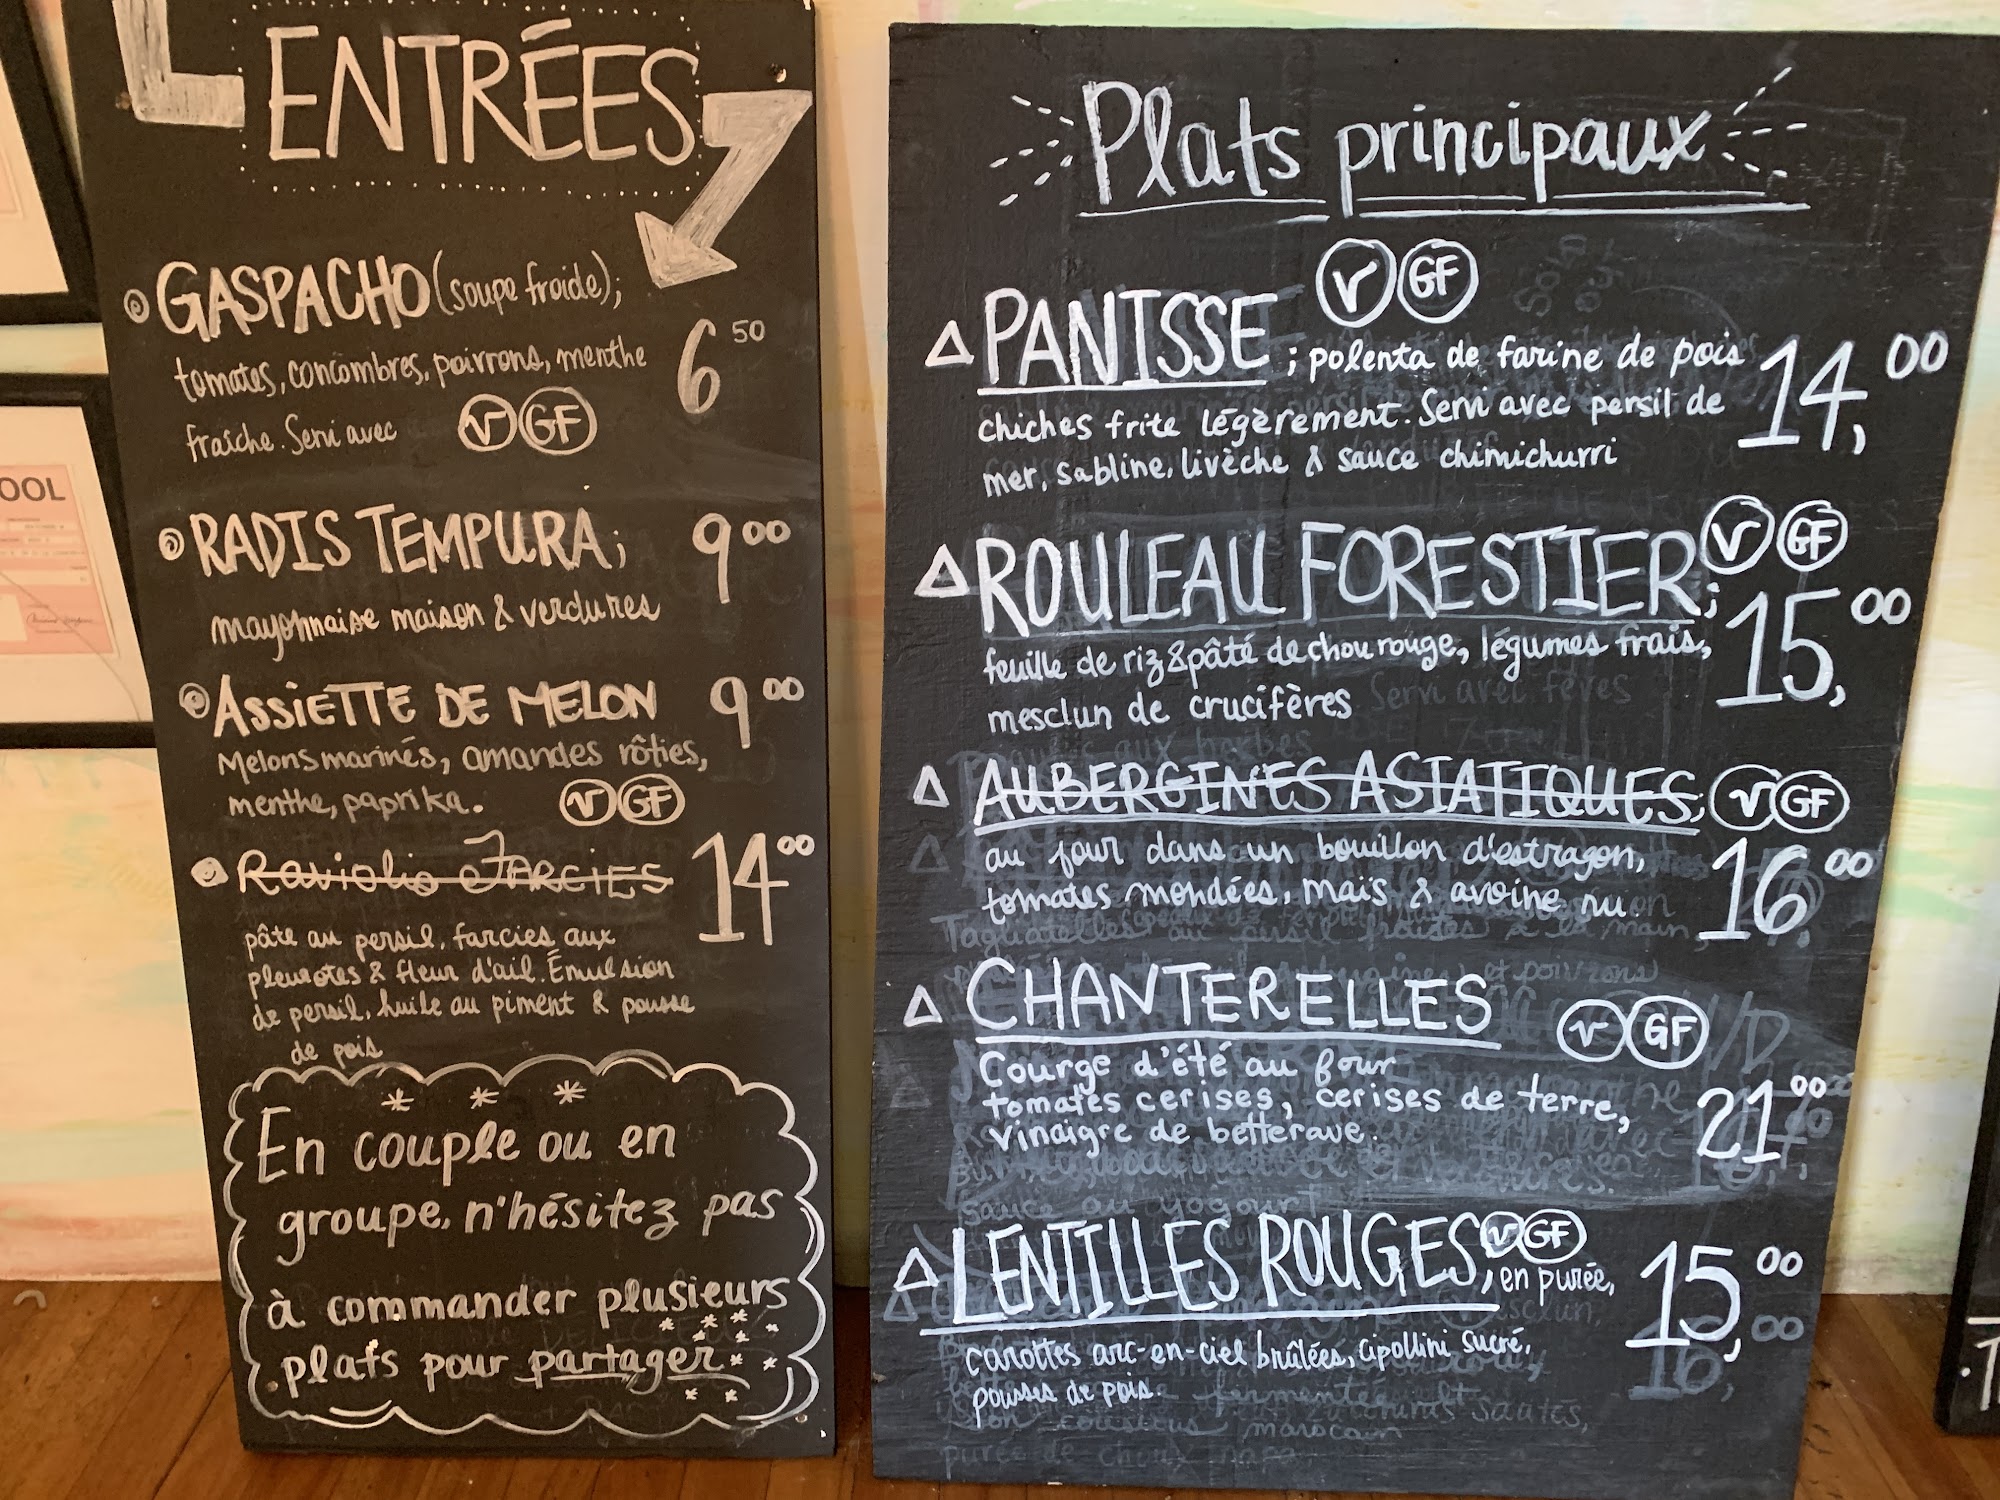 ENTRÉES
GASPACHO (soupe froide);
tomates, concombres, poivrons, menthe
6 50
fraîche. Servi avec V GF
RADIS TEMPURA;
9 00
mayonnaise maison & verdures
ASSIETTE DE MELON
9 00
Melons marinés, amandes rôties,
menthe, paprika. V GF
Raviolis FARCIES
14 00
pâte au persil, farcies aux
pleurotes & fleur d'ail. Émulsion
de persil, huile au piment & pousse
de pois
En couple ou en
groupe, n'hésitez pas
à commander plusieurs
plats pour partager
Plats principaux
V GF
PANISSE; polenta de farine de pois
14,00
chiches frite légèrement. Servi avec persil de
mer, sabline, livèche & sauce chimichurri
ROULEAU FORESTIER; V GF
15,00
feuille de riz & pâté de chou rouge, légumes frais,
mesclun de crucifères Servi avec fèves
AUBERGINES ASIATIQUES, V GF
au four dans un bouillon d'estragon,
16,00
tomates mondées, maïs & avoine nu.
CHANTERELLES V GF
Courge d'été au four
tomates cerises, cerises de terre,
21 00
vinaigre de betterave.
sauce au yogourt
LENTILLES ROUGES, V GF en purée,
15,00
carottes arc-en-ciel brûlées, cipollini sucré,
pousses de pois.
purée de choux
OOL